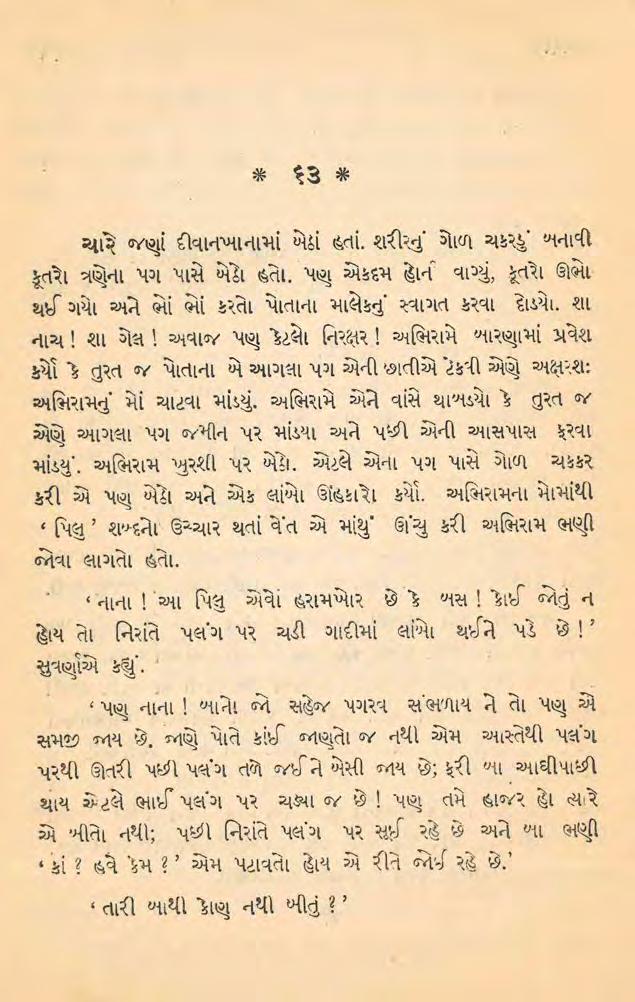 * ૬૩ *
ચારે જણાં દીવાનખાનામાં બેઠાં હતાં. શરીરનું ગોળ ચકરડું બનાવી
કૂતરો ત્રણેના પગ પાસે બેઠો હતો. પણ એકદમ હોર્ન વાગ્યું, કૂતરો ઊભો
થઈ ગયો અને ભોં ભોં કરતો પોતાના માલેકનું સ્વાગત કરવા દોડયો. શા
નાચ ! શા ગેલ ! અવાજ પણ કેટલો નિરક્ષર ! અભિરામે બારણામાં પ્રવેશ
કર્યો કે તુરત જ પોતાના બે આગલા પગ એની છાતીએ ટેકવી એણે અક્ષરશ:
અભિરામનું મોં ચાટવા માંડયું. અભિરામે એને વાંસે થાબડયો કે તુરત જ
એણે આગલા પગ જમીન પર માંડયા અને પછી એની આસપાસ ફરવા
માંડયું. અભિરામ ખુરશી પર બેઠો. એટલે એના પગ પાસે ગોળ ચક્કર
ફરી એ પણ બેઠો અને એક લાંબો ઊંહકારો કર્યો. અભિરામના મોમાંથી
‘ પિલુ ’ શબ્દનો ઉચ્ચાર થતાં વેંત એ માંથું ઊંચુ કરી અભિરામ ભણી
જોવા લાગતો હતો.
‘ નાના ! આ પિલુ એવો હરામખોર છે કે બસ ! કોઈ જોતું ન
હોય તો નિરાંતે પલંગ પર ચડી ગાદીમાં લાંબો થઈને પડે છે ! ’
સુવર્ણાએ કહ્યું.
‘ પણ નાના ! બાનો જો સહેજ પગરવ સંભળાય ને તો પણ એ
સમજી જાય છે. જાણે પોતે કાંઈ જાણતો જ નથી એમ આસ્તેથી પલંગ
પરથી ઊતરી પછી પલંગ તળે જઈને બેસી જાય છે; ફરી બા આઘીપાછી
થાય એટલે ભાઈ પલંગ પર ચઢ્યા જ છે ! પણ તમે હાજર હો ત્યારે
એ બીતો નથી; પછી નિરાંતે પલંગ પર સૂઈ રહે છે અને બા ભણી
‘ કાં ? હવે કેમ ? ’ એમ પટાવતો હોય એ રીતે જોઈ રહે છે.’
‘ તારી બાથી કોણ નથી બીતું ? ’